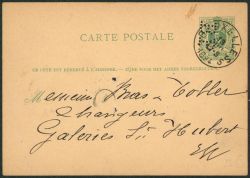 CARTE POSTALE
CE CÔTÉ EST RÉSERVÉ À L'ADRESSE. — ZIJDE VOOR HET ADRES VOORBEHOUDEN
Messieurs Bras & Tobler
Changeurs
Galeries St Hubert
E/V